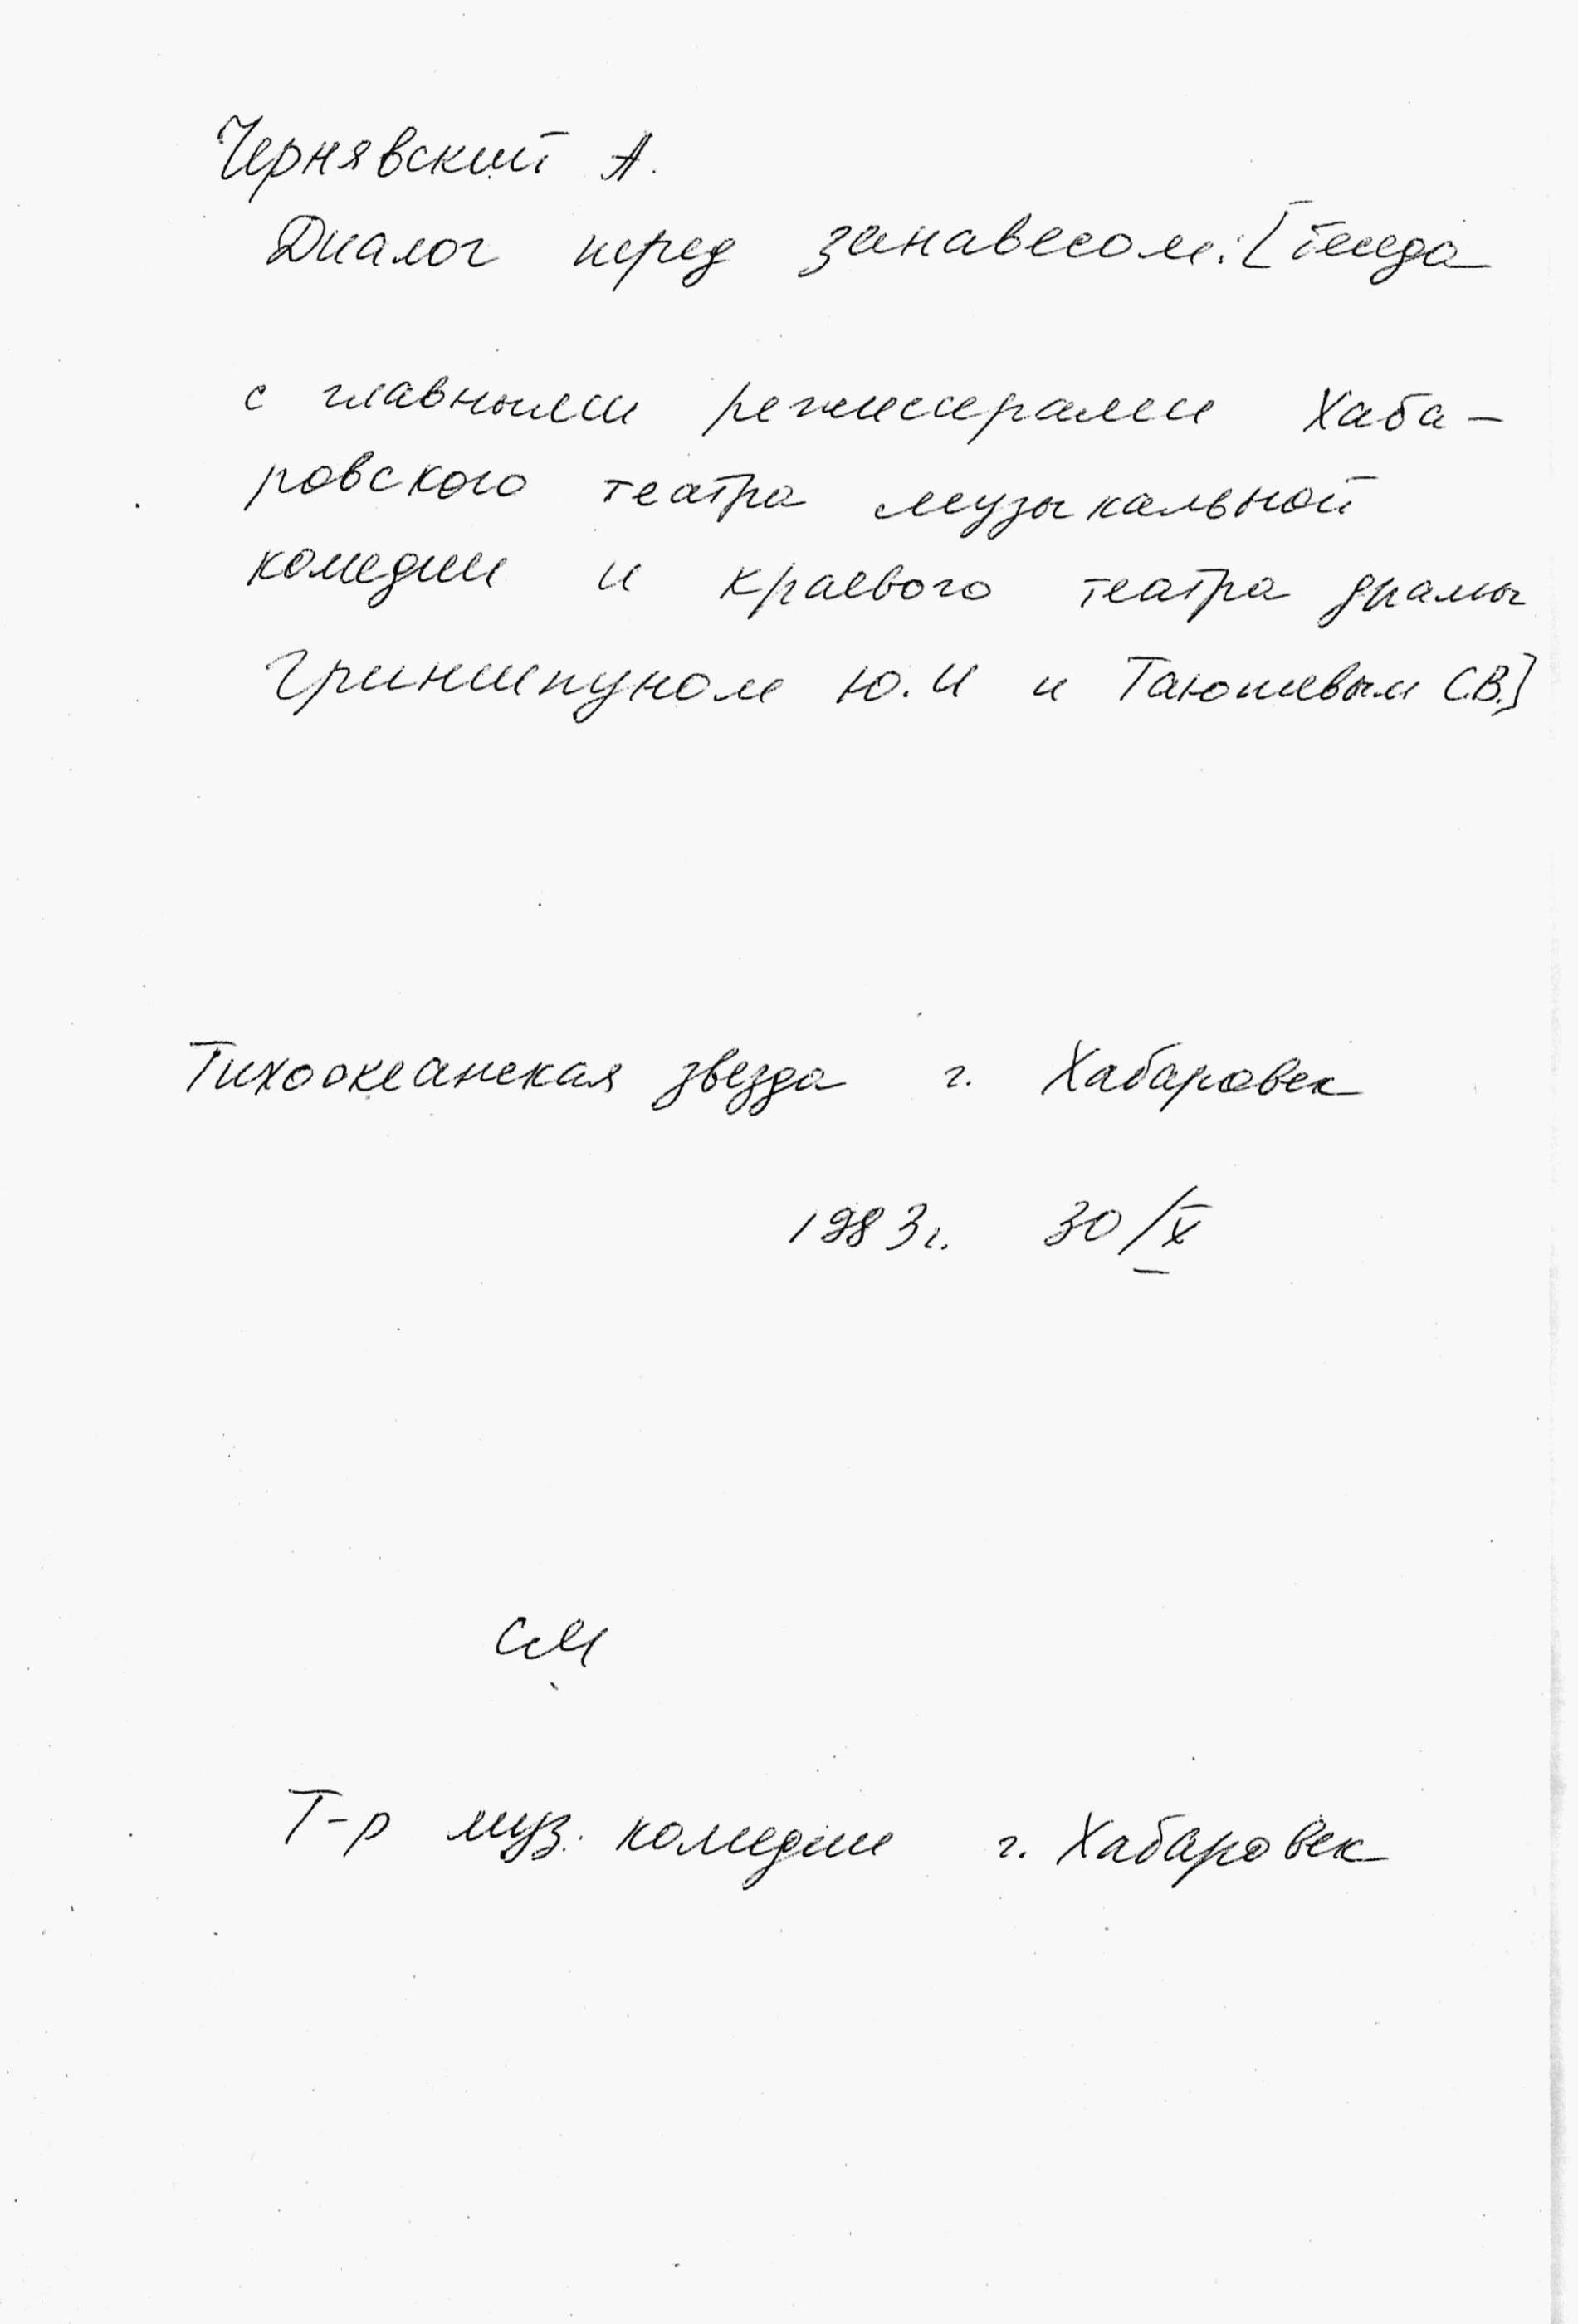 Чернявский А.
Диалог перед занавесом: [беседа
с главными режиссерами Хаба-
ровского театра музыкальной
комедии и краевого театра драмы
Гриншпуном Ю.И и Таюшевым С.В.]
Тихоокеанская звезда г. Хабаровск
1983г. 30/X
СМ
Т-р муз. комедии г. Хабаровск